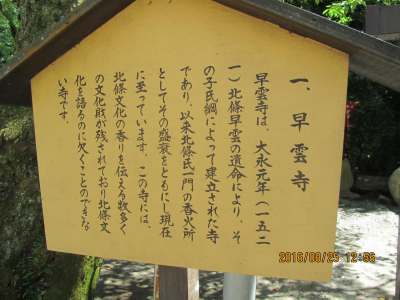 一、早雲寺
早雲寺は、大永元年（一五二
一）北條早雲の遺命により、そ
の子氏綱によって建立された寺
であり、以来北條氏一門の香火所
としてその盛衰をともにし現在
に至っています。この寺には、
北條文化の香りを伝える数多く
の文化財が残されており北條文
化を語るのに欠くことのできな
い寺です。
2016/08/25 12:56